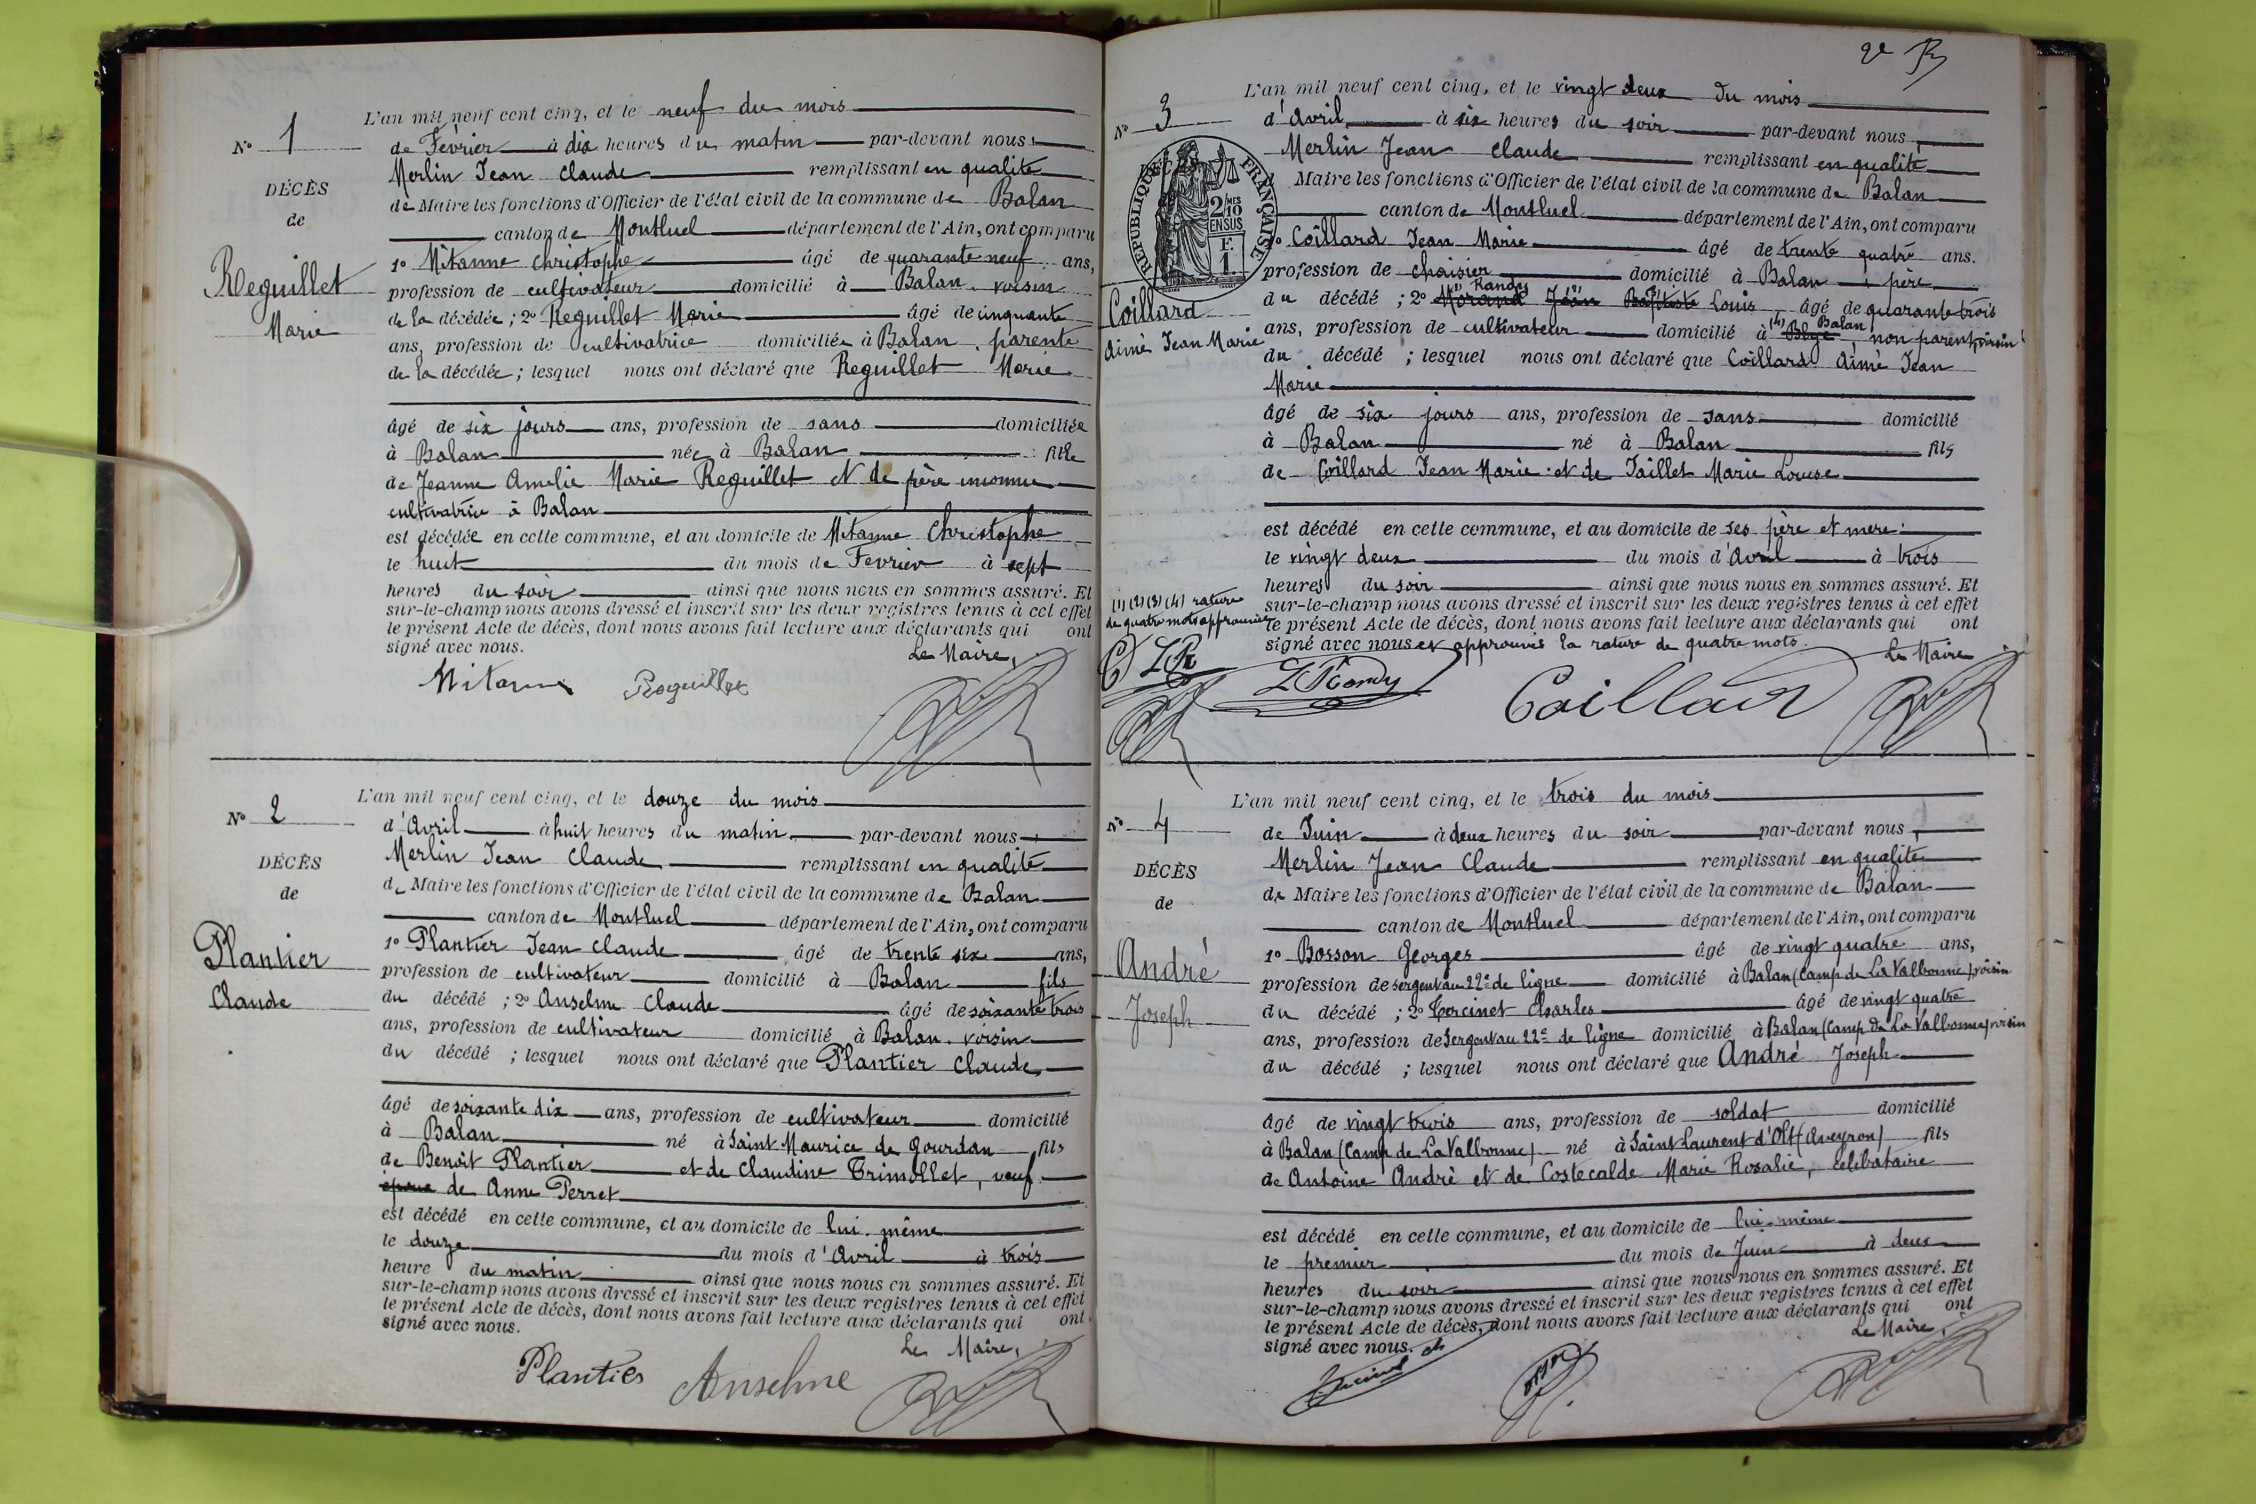 L'an mil neuf cent cinq, et le neuf du mois
N° 1
de Février à dix heures du matin par-devant nous
Merlin Jean Claude remplissant en qualité
de Maire les fonctions d'Officier de l'état civil de la commune de Balan
canton de Montluel département de l'Ain, ont comparu
DÉCÈS
de
Reguillet
Marie
1° Mitanne Christophe âgé de quarante neuf ans,
profession de cultivateur domicilié à Balan voisin
de la décédée ; 2° Reguillet Marie âgé de cinquante
ans, profession de cultivatrice domiciliée à Balan, parente
de la décédée ; lesquel nous ont déclaré que Reguillet Marie
âgé de six jours ans, profession de sans domiciliée
à Balan née à Balan fille
de Jeanne Amelie Marie Reguillet et de père inconnu
cultivatrice à Balan
est décédée en cette commune, et au domicile de Mitanne Christophe
le huit du mois de Fevrier à sept
heures du soir ainsi que nous nous en sommes assuré. Et
sur-le-champ nous avons dressé et inscrit sur les deux registres tenus à cet effet
le présent Acte de décès, dont nous avons fait lecture aux déclarants qui ont
signé avec nous.
Le Maire,
Mitanne Reguillet
L'an mil neuf cent cinq, et le douze du mois
N° 2
d'Avril à huit heures du matin par-devant nous
Merlin Jean Claude remplissant en qualité
de Maire les fonctions d'Officier de l'état civil de la commune de Balan
canton de Montluel département de l'Ain, ont comparu
DÉCÈS
de
Plantier
Claude
1° Plantier Jean Claude âgé de trente six ans,
profession de cultivateur domicilié à Balan fils
du décédé ; 2° Anselme Claude âgé de soixante trois
ans, profession de cultivateur domicilié à Balan voisin
du décédé ; lesquel nous ont déclaré que Plantier Claude
âgé de soixante dix ans, profession de cultivateur domicilié
à Balan né à Saint Maurice de Gourdan fils
de Benoît Plantier et de Claudine Trimollet, veuf
époux de Anne Perret
est décédé en cette commune, et au domicile de lui-même
le douze du mois d'Avril à trois
heure du matin ainsi que nous nous en sommes assuré. Et
sur-le-champ nous avons dressé et inscrit sur les deux registres tenus à cet effet
le présent Acte de décès, dont nous avons fait lecture aux déclarants qui ont
signé avec nous.
Le Maire,
Plantier Anselme
2e
L'an mil neuf cent cinq, et le vingt deux du mois
N° 3
d'Avril à six heures du soir par-devant nous
Merlin Jean Claude remplissant en qualité
Maire les fonctions d'Officier de l'état civil de la commune de Balan
canton de Montluel département de l'Ain, ont comparu
RÉPUBLIQUE FRANÇAISE
2 MES 10 EN SUS
F. 1.
Coillard
Aimé Jean Marie
1° Coillard Jean Marie âgé de trente quatre ans.
profession de chaisier domicilié à Balan, père
Randy
du décédé ; 2° Morand Jean Baptiste Louis, âgé de quarante trois
Balan
ans, profession de cultivateur domicilié à (4) Blye, non parent, voisin
du décédé ; lesquel nous ont déclaré que Coillard Aimé Jean
Marie
âgé de six jours ans, profession de sans domicilié
à Balan né à Balan fils
de Coillard Jean Marie et de Jaillet Marie Louise
est décédé en cette commune, et au domicile de ses père et mère
le vingt deux du mois d'Avril à trois
heures du soir ainsi que nous nous en sommes assuré. Et
sur-le-champ nous avons dressé et inscrit sur les deux registres tenus à cet effet
le présent Acte de décès, dont nous avons fait lecture aux déclarants qui ont
signé avec nous et approuvés la rature de quatre mots.
Le Maire
(1) (2) (3) (4) rature
de quatre mots approuvée
C LR
L Randy Coillard
L'an mil neuf cent cinq, et le trois du mois
N° 4
de Juin à deux heures du soir par-devant nous,
Merlin Jean Claude remplissant en qualité
de Maire les fonctions d'Officier de l'état civil de la commune de Balan
canton de Montluel département de l'Ain, ont comparu
DÉCÈS
de
André
Joseph
1° Bosson Georges âgé de vingt quatre ans,
profession de sergent au 22e de ligne domicilié à Balan (Camp de La Valbonne) voisin
du décédé ; 2° Tercinet Charles âgé de vingt quatre
ans, profession de Sergent au 22e de ligne domicilié à Balan (Camp de La Valbonne) voisin
du décédé ; lesquel nous ont déclaré que André Joseph
âgé de vingt trois ans, profession de soldat domicilié
à Balan (Camp de La Valbonne) né à Saint Laurent d'Olt (Aveyron) fils
de Antoine André et de Costecalde Marie Rosalie, célibataire
est décédé en cette commune, et au domicile de lui-même
le premier du mois de Juin à deux
heures du soir ainsi que nous nous en sommes assuré. Et
sur-le-champ nous avons dressé et inscrit sur les deux registres tenus à cet effet
le présent Acte de décès, dont nous avons fait lecture aux déclarants qui ont
signé avec nous.
Le Maire,